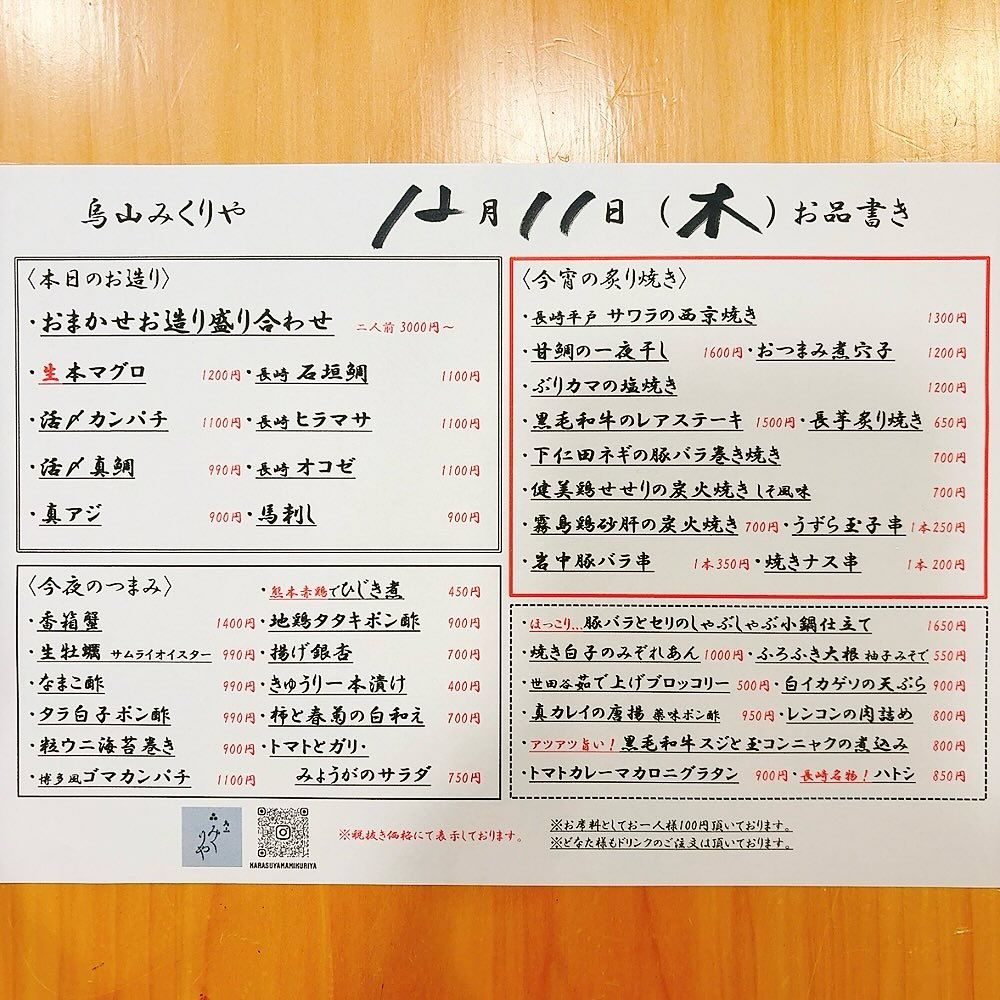 烏山みくりや 12月11日(木)お品書き
〈本日のお造り〉
・おまかせお造り盛り合わせ 二人前 3000円〜
・生本マグロ 1200円・長崎 石垣鯛 1100円
・活〆カンパチ 1100円・長崎 ヒラマサ 1100円
・活〆真鯛 990円・長崎 オコゼ 1100円
・真アジ 900円・馬刺し 900円
〈今夜のつまみ〉 ・熊本赤鶏でひじき煮 450円
・香箱蟹 1400円・地鶏タタキポン酢 900円
・生牡蠣 サムライオイスター 990円・揚げ銀杏 700円
・なまこ酢 990円・きゅうり一本漬け 400円
・タラ白子ポン酢 990円・柿と春菊の白和え 700円
・粒ウニ海苔巻き 900円・トマトとガリ・
・博多風ゴマカンパチ 1100円 みょうがのサラダ 750円
〈今宵の炙り焼き〉
・長崎平戸 サワラの西京焼き 1300円
・甘鯛の一夜干し 1600円・おつまみ煮穴子 1200円
・ぶりカマの塩焼き 1200円
・黒毛和牛のレアステーキ 1500円・長芋炙り焼き 650円
・下仁田ネギの豚バラ巻き焼き 700円
・健美鶏せせりの炭火焼き しそ風味 700円
・霧島鶏砂肝の炭火焼き 700円・うずら玉子串 1本250円
・岩中豚バラ串 1本350円・焼きナス串 1本200円
・ほっこり…豚バラとセリのしゃぶしゃぶ小鍋仕立て 1650円
・焼き白子のみぞれあん 1000円・ふろふき大根 柚子みそで 550円
・世田谷茹で上げブロッコリー 500円・白イカゲソの天ぷら 900円
・真カレイの唐揚 薬味ポン酢 950円・レンコンの肉詰め 800円
・アツアツ旨い!黒毛和牛スジと玉コンニャクの煮込み 800円
・トマトカレーマカロニグラタン 900円・長崎名物!ハトシ 850円
みくりや
KARASUYAMAMIKURIYA
※税抜き価格にて表示しております。
※お席料としてお一人様100円頂いております。
※どなた様もドリンクのご注文は頂いております。